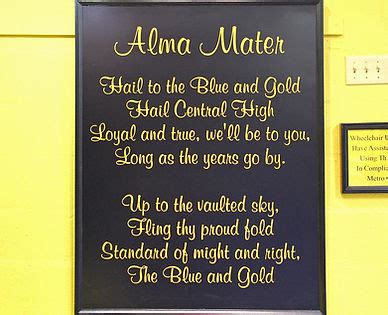 Alma Mater
Hail to the Blue and Gold
Hail Central High
Loyal and true, we'll be to you,
Long as the years go by.
Up to the vaulted sky,
Fling thy proud fold
Standard of might and right,
The Blue and Gold
Wheelchair
Have Assista
Using Th
In Complia
Metro